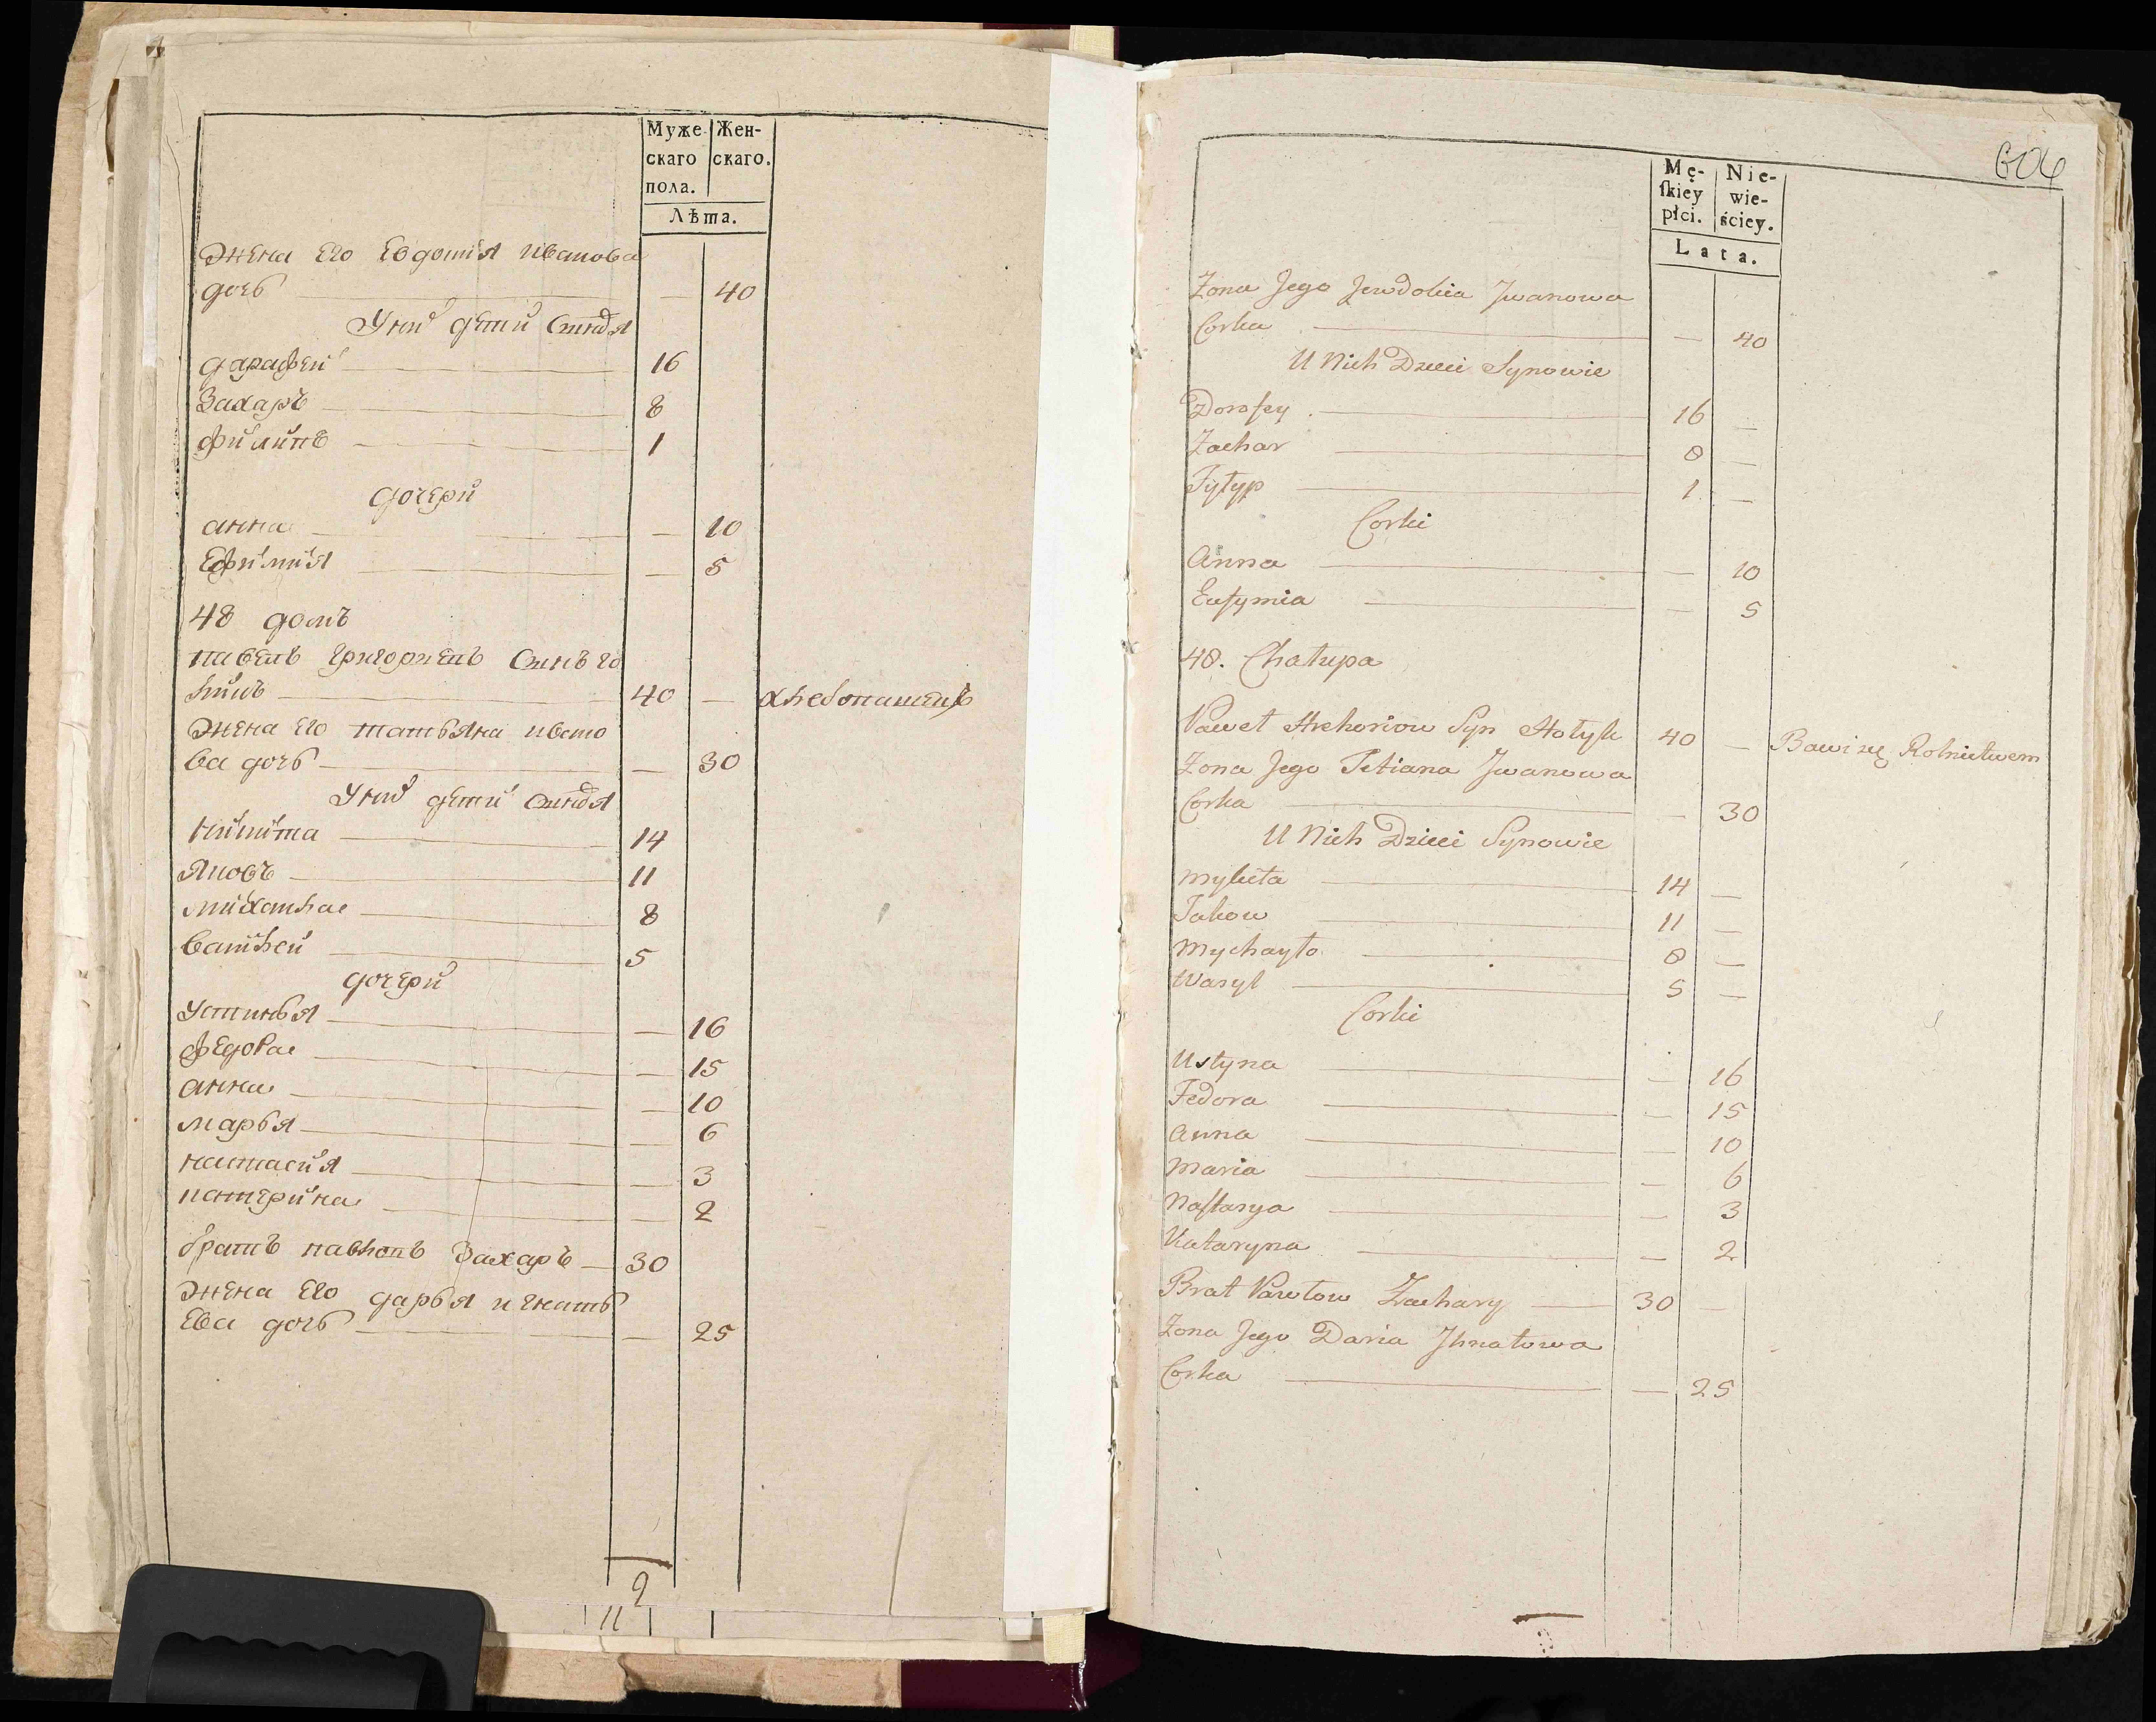 Муже- Жен-
скаго скаго.
пола.
Лѣта.
жена его Евдотия иванова
дочь — 40
У ни дети
дарафей 16
Захаръ 8
филипъ 1
дочери
анна — 10
Ефимия — 5
48 домъ
павелъ григориевъ синъ го
ликъ 40 — хлебопашецъ
жена его татьяна ивано
ва дочь — 30
У ни дети
никита 14
Яковъ 11
михаила 8
василей 5
дочери
Устинья — 16
федора — 15
анна — 10
марья — 6
настасия — 3
катерина — 2
братъ павловъ Захаръ — 30
жена его дарья игнать
ева дочь — 25
9
11
604
Mę- Nie-
ſkiey wie-
płci. ściey.
Lata.
Żona Jego Jewdokia Jwanowa
Corka — 40
U Nich Dzieci Synowie
Dorofey 16 —
Zachar 8 —
Fyłyp 1 —
Corki
Anna — 10
Eufymia — 5
48. Chałupa
Paweł Hrehoriow Syn Hołyk 40 — Bawi się Rolnictwem
Żona Jego Tetiana Jwanowa
Corka — 30
U Nich Dzieci Synowie
Mykita 14 —
Jakow 11 —
Mychayło 8 —
Wasyl 5 —
Corki
Ustyna — 16
Fedora — 15
Anna — 10
Maria — 6
Naſtasya — 3
Kataryna — 2
Brat Pawłow Zachary 30 —
Żona Jego Daria Jhnatowa
Corka — 25